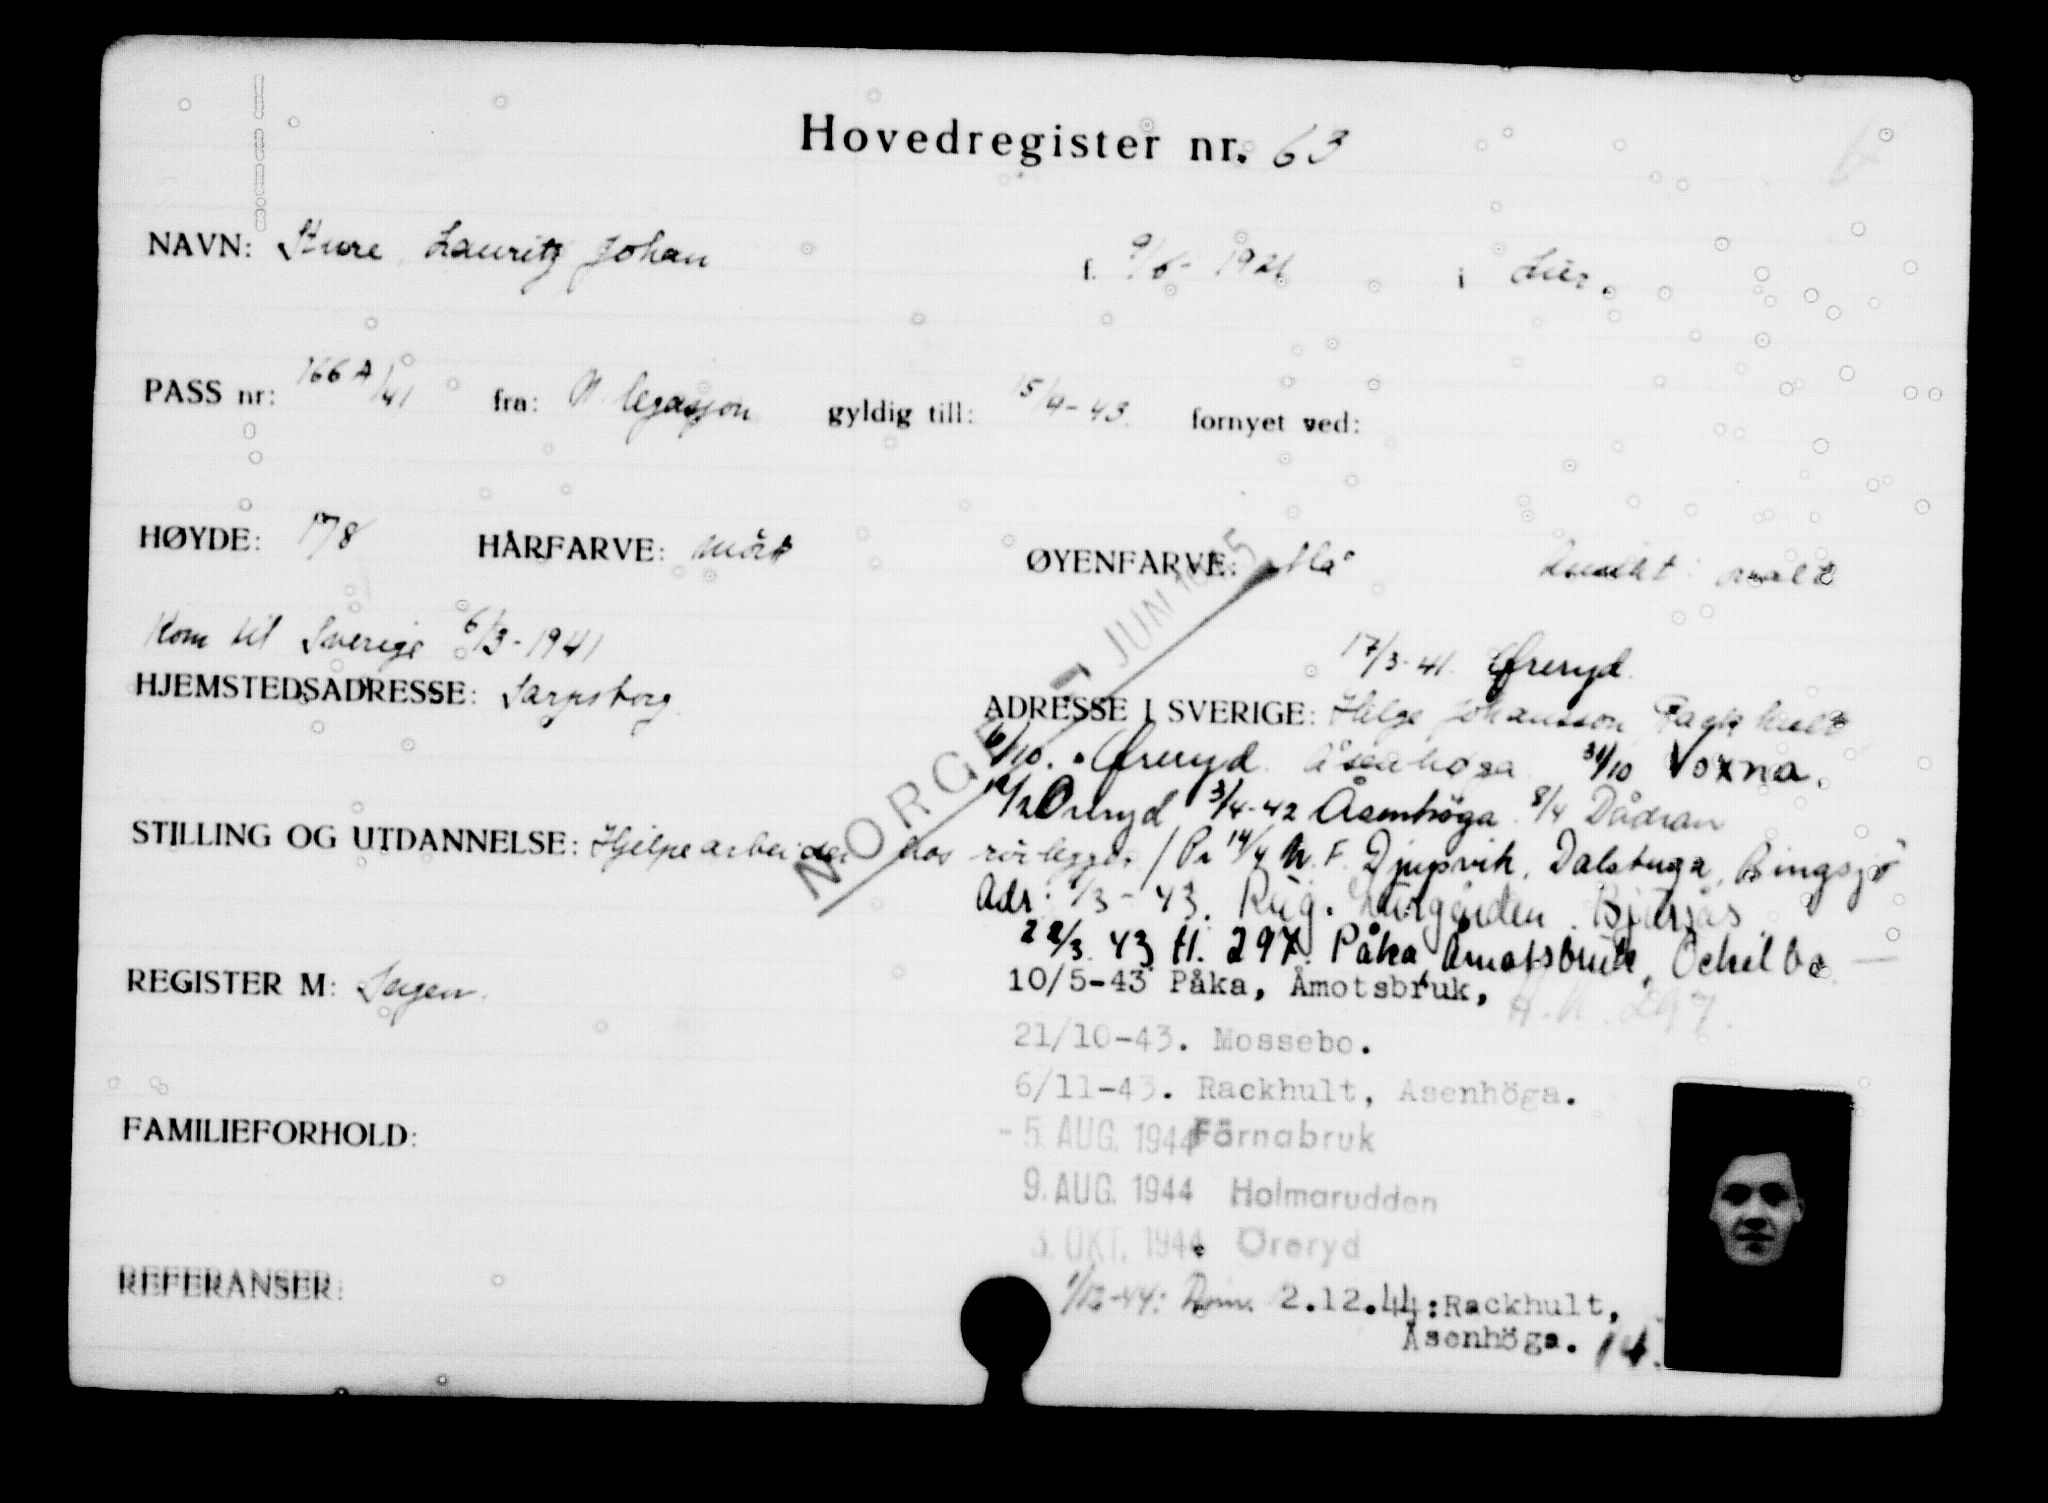 Hovedregister nr. 63
NAVN: Sture, Lauritz Johan f. 9/6- 1921 i Lier.
PASS nr: 166 A/41 fra: N. legasjon gyldig till: 15/4-43. fornyet ved:
HØYDE: 178 HÅRFARVE: mörk ØYENFARVE: blå Ansikt: ovalt
Kom til Sverige 6/3-1941
17/3-41. Øreryd.
HJEMSTEDSADRESSE: Sarpsborg.
ADRESSE I SVERIGE: Helge Johansson, Rackhult
/10. Øreryd. Åsenhöga 31/10 Voxna.
Öreryd 3/4-42 Åsenhöga. 8/4 Dådran
STILLING OG UTDANNELSE: Hjelpearbeider hos rörlegger / Pr 14/4 N.F. Djupsvik, Dalstuga, Bingsjö
NORGE 7 JUN 1945
Adr: 1/3-43. Reg. Bjursås
22/3. 43 H. 297. Påka Åmotsbruk, Ockelbo
REGISTER M: Ingen.
10/5-43 Påka, Åmotsbruk, H.N. 297.
21/10-43. Mossebo.
6/11-43. Rackhult, Åsenhöga.
FAMILIEFORHOLD:
- 5. AUG. 1944 Förnabruk
9. AUG. 1944 Holmarudden
3. OKT. 1944. Öreryd
REFERANSER:
1/12-44: 2.12.44:Rackhult,
Åsenhöga. 14.